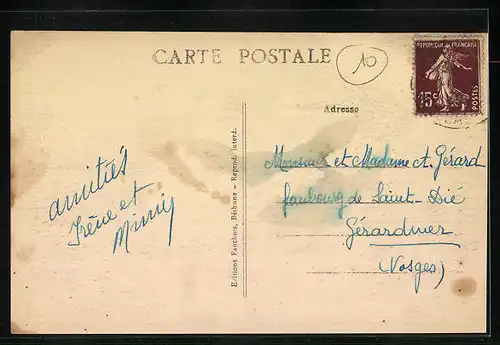 CARTE POSTALE
10
REPUBLIQUE FRANÇAISE
15c
POSTES
Adresse
Monsieur et Madame A. Gérard
faubourg de Saint-Dié
Gérardmer
(Vosges)
amitiés
Irène et
Mimy
Editions Fauchois, Béthune - Reprod. interd.